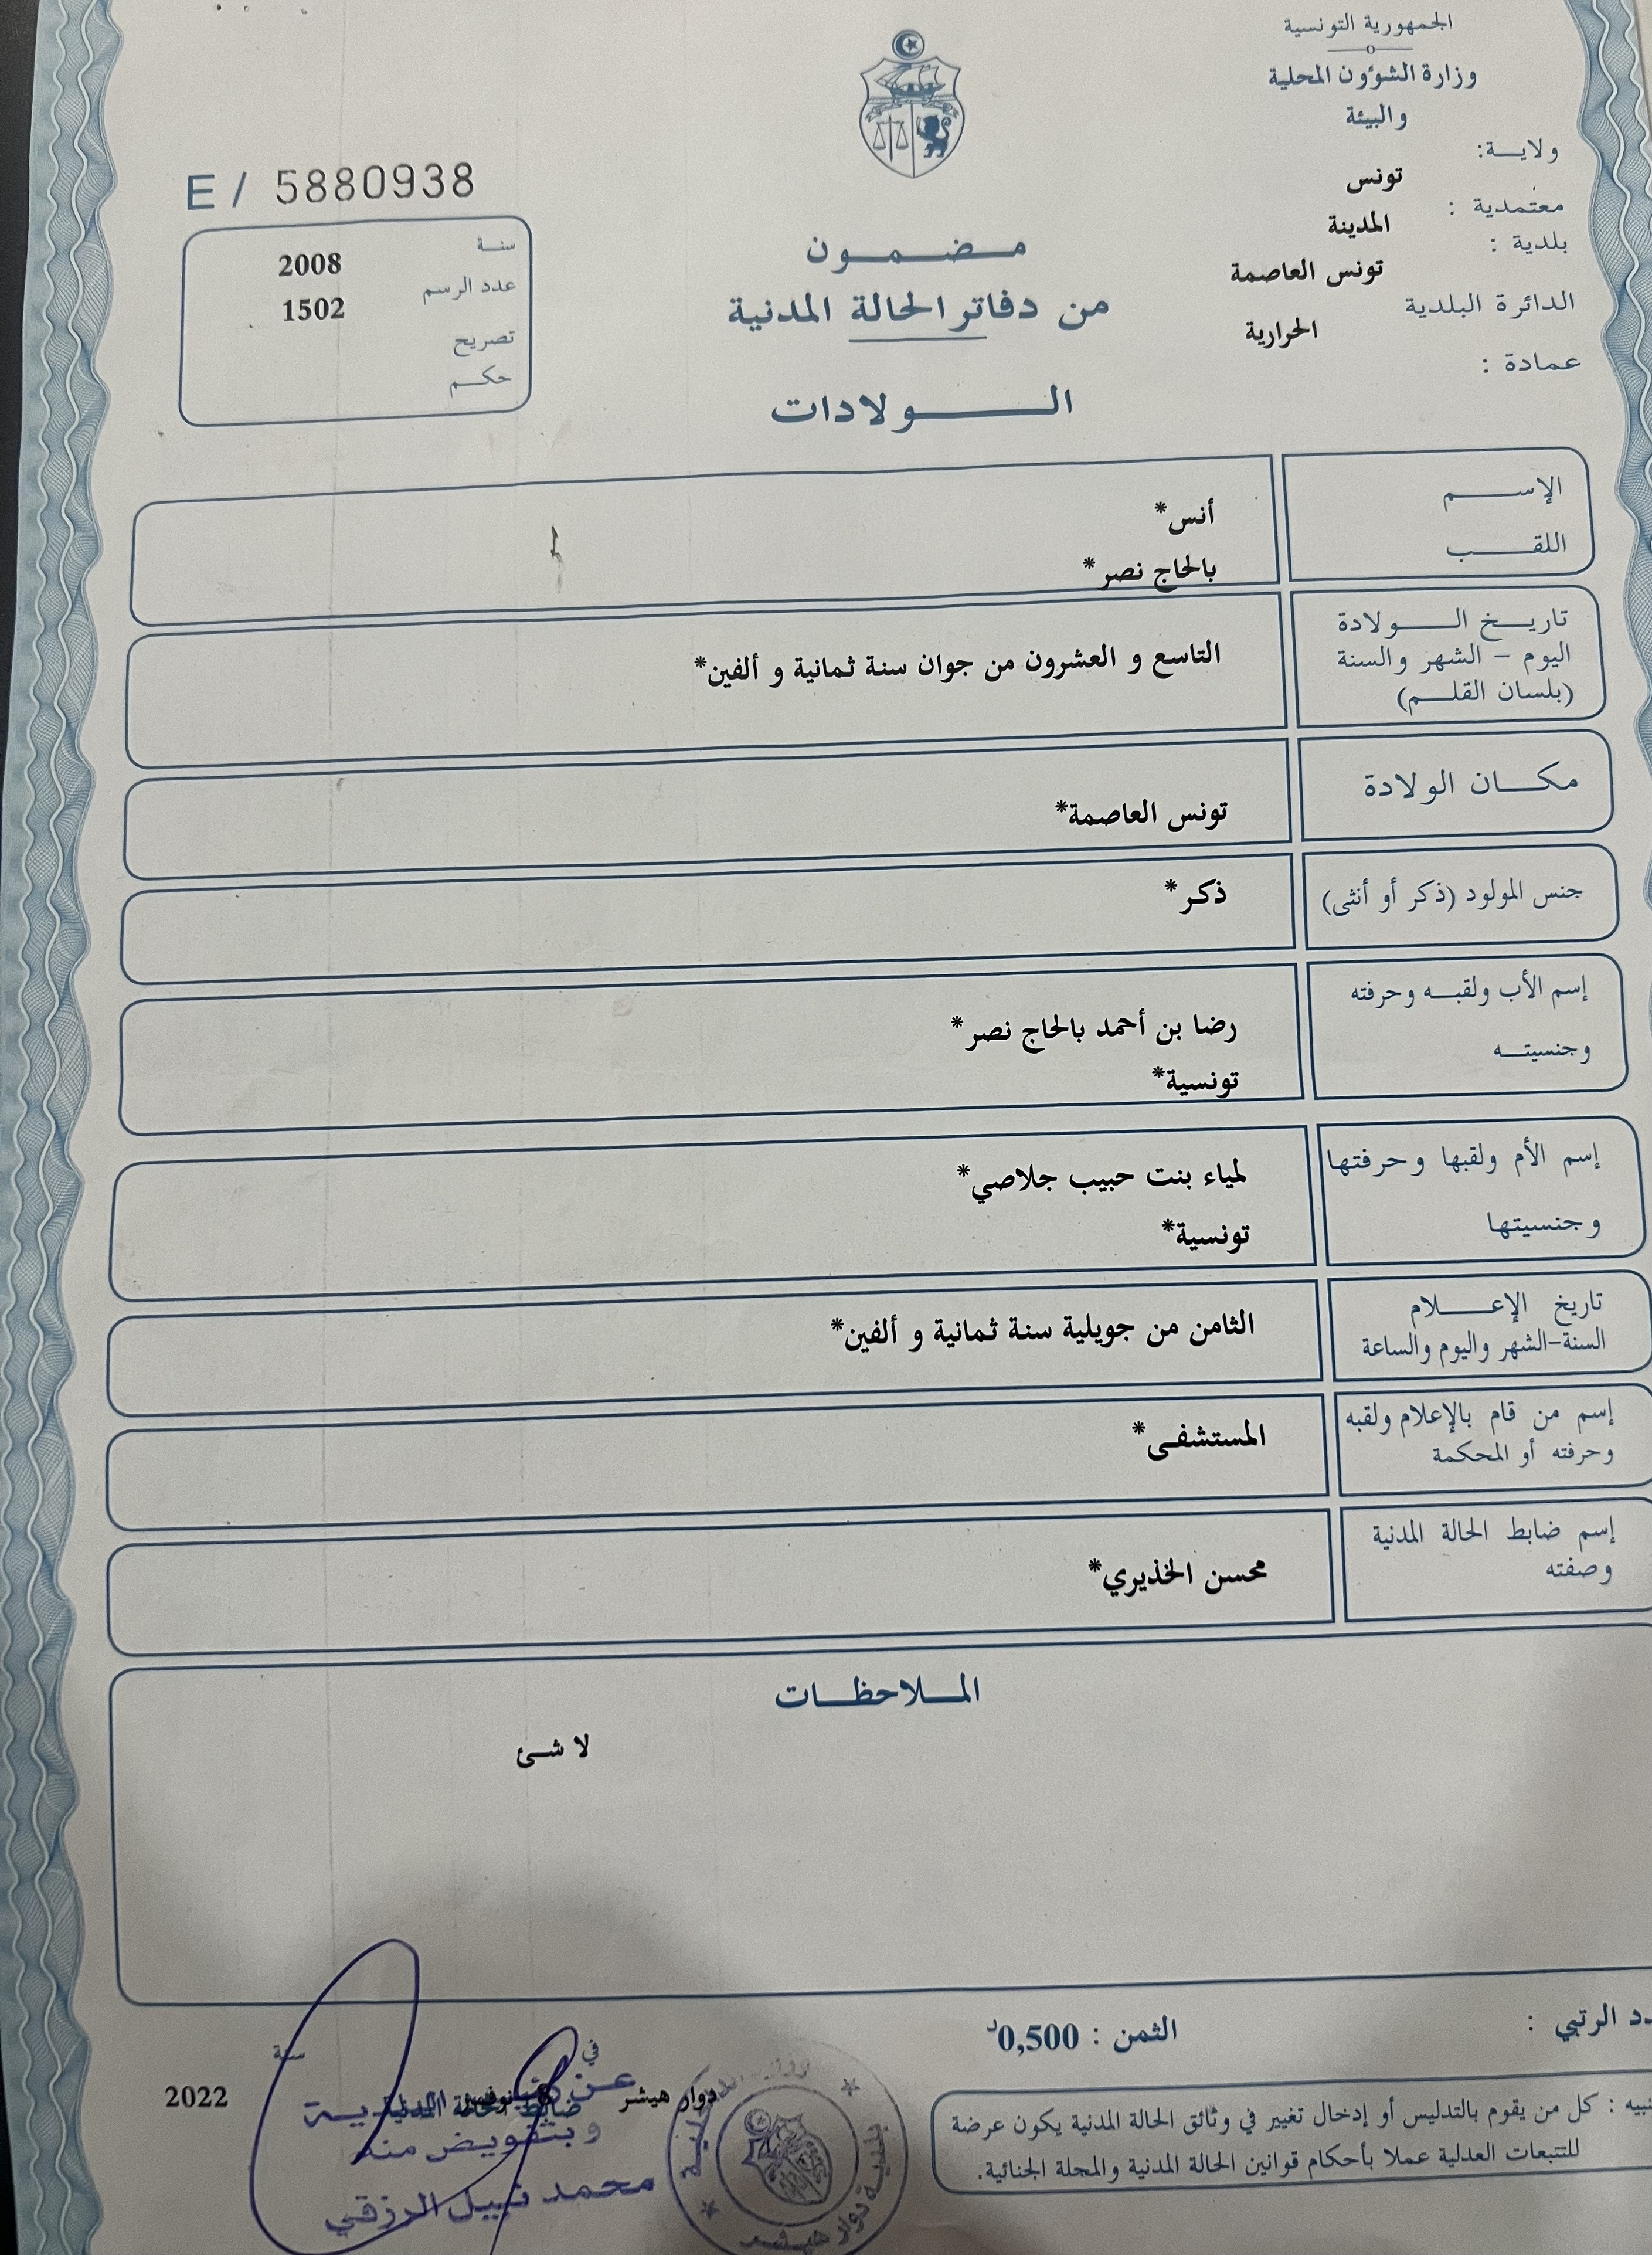 الجمهورية التونسية
وزارة الشؤون المحلية
والبيئة
ولاية:
تونس
معتمدية :
المدينة
بلدية :
تونس العاصمة
الدائرة البلدية
الحرارية
عمادة :
E / 5880938
سنة
2008
عدد الرسم
1502
تصريح
حكم
مضمون
من دفاتر الحالة المدنية
الولادات
الإسم
أنس*
اللقب
بالحاج نصر*
تاريخ الولادة
اليوم – الشهر والسنة
(بلسان القلم)
التاسع و العشرون من جوان سنة ثمانية و ألفين*
مكان الولادة
تونس العاصمة*
جنس المولود (ذكر أو أنثى)
ذكر*
إسم الأب ولقبه وحرفته
وجنسيته
رضا بن أحمد بالحاج نصر*
تونسية*
إسم الأم ولقبها وحرفتها
وجنسيتها
لمياء بنت حبيب جلاصي*
تونسية*
تاريخ الإعلام
السنة-الشهر واليوم والساعة
الثامن من جويلية سنة ثمانية و ألفين*
إسم من قام بالإعلام ولقبه
وحرفته أو المحكمة
المستشفى*
إسم ضابط الحالة المدنية
وصفته
محسن الخذيري*
الملاحظات
لا شئ
الرتبي :
الثمن : 0,500د
في
سنة
دوار هيشر
نوفمبر
2022
ضابط الحالة المدنية
وبتفويض منه
محمد نبيل الرزقي
بلدية دوار هيشر
كل من يقوم بالتدليس أو إدخال تغيير في وثائق الحالة المدنية يكون عرضة
للتتبعات العدلية عملا بأحكام قوانين الحالة المدنية والمجلة الجنائية.